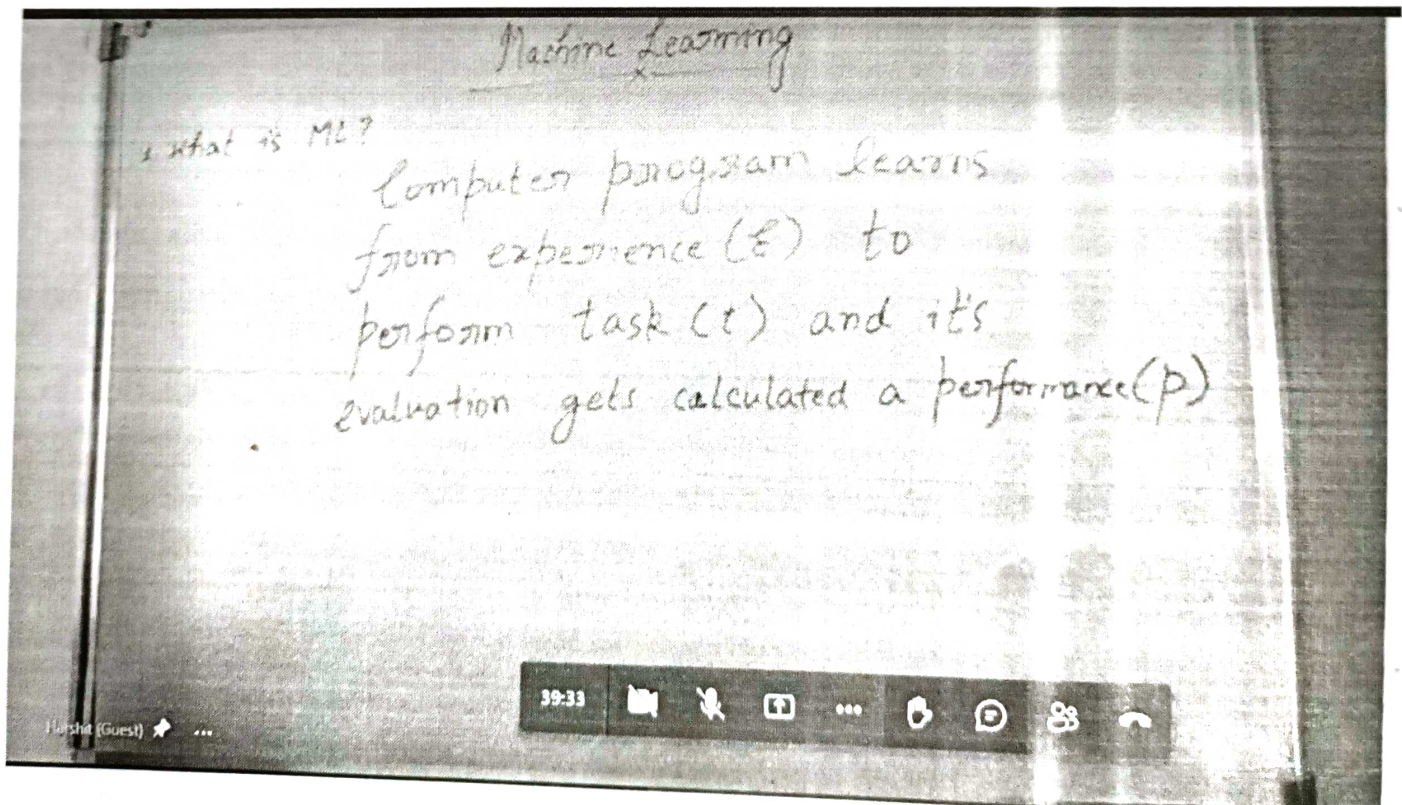 Machine Learning
1 what is ML?
Computer program learns
from experience (E) to
perform task (t) and it's
evaluation gets calculated a performance (p)
39:33
Harshit (Guest)